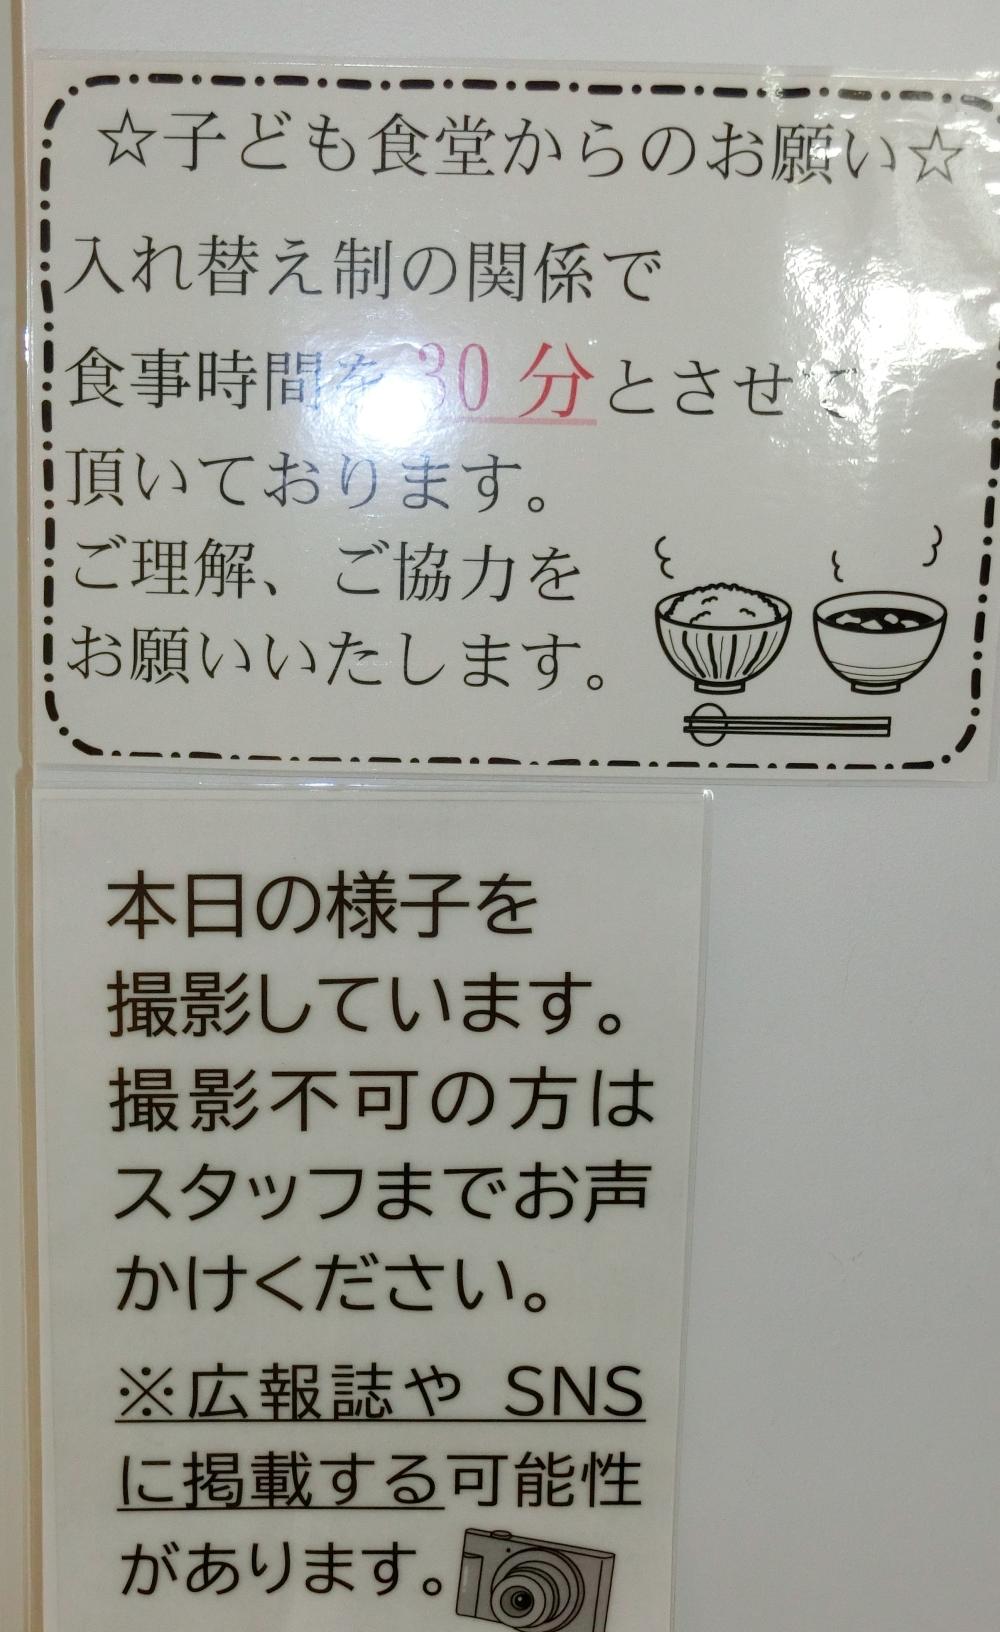 ☆子ども食堂からのお願い☆
入れ替え制の関係で
食事時間を 30 分とさせて
頂いております。
ご理解、ご協力を
お願いいたします。
本日の様子を
撮影しています。
撮影不可の方は
スタッフまでお声
かけください。
※広報誌や SNS
に掲載する可能性
があります。